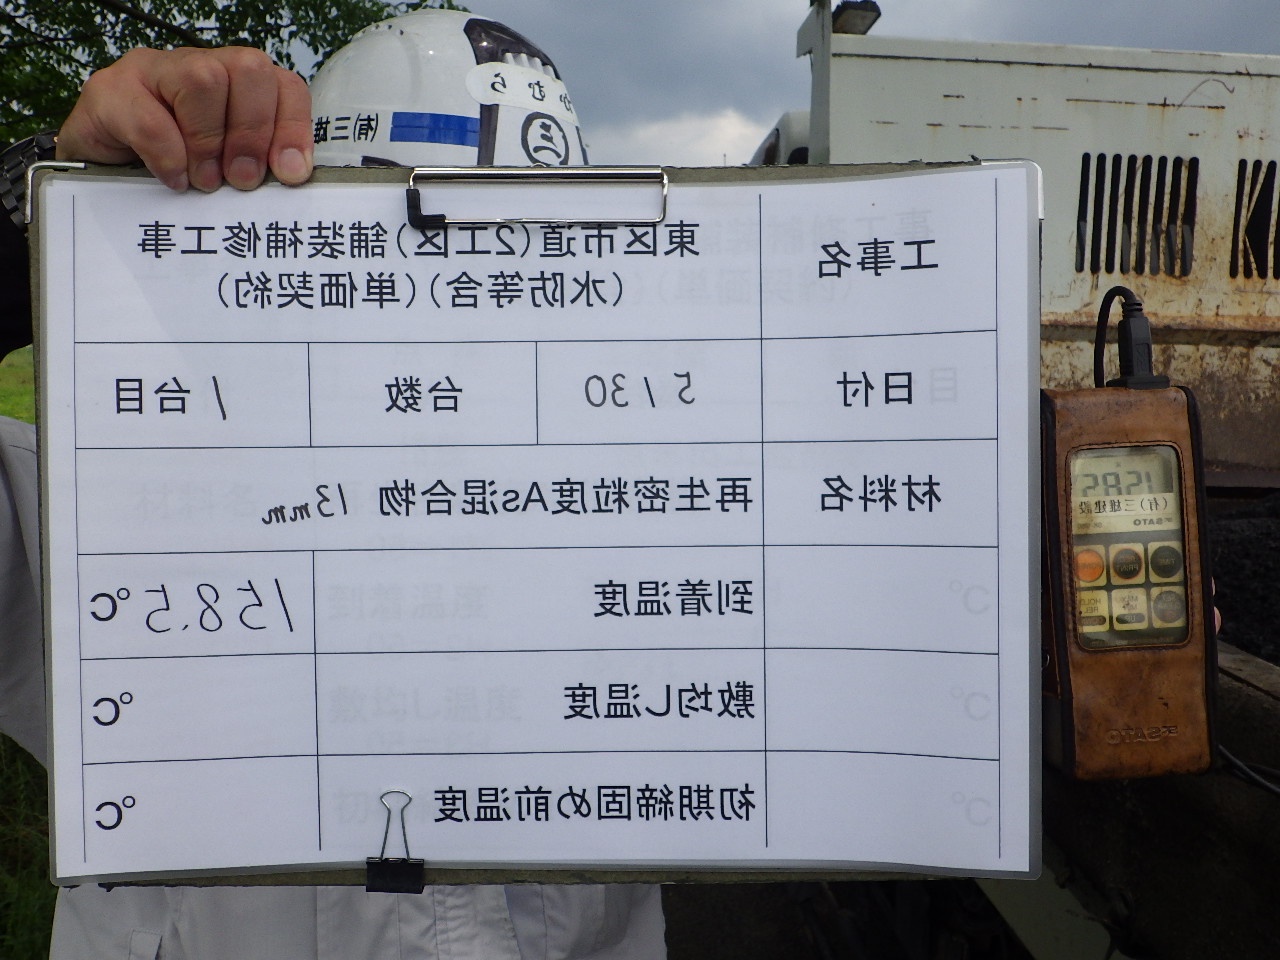 かむら
(有)三雄
工事名
東区市道(2工区)舗装補修工事
(水防等含)(単価契約)
日付
5/30
台数
1台目
材料名
再生密粒度As混合物 13mm
到着温度
158.5℃
敷均し温度
℃
初期締固め前温度
℃
158.5
(有)三雄建設
SATO
SATO